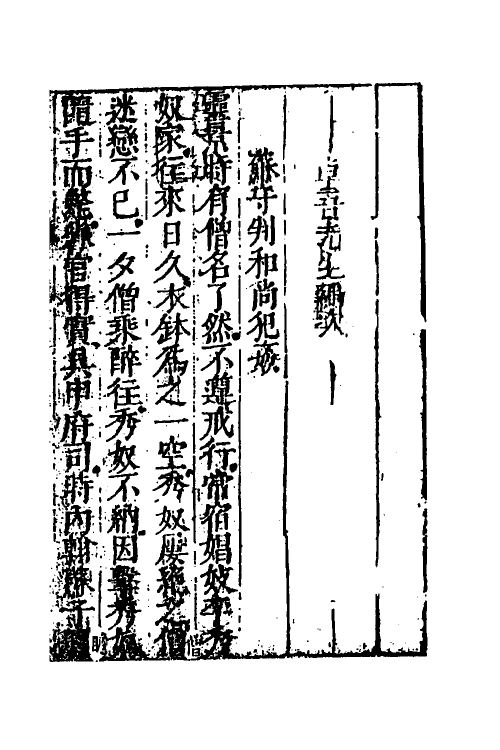 卓吾先生編次
蘇守判和尚犯姦
靈景時有僧名了然不遵戒行常宿娼妓李秀
奴家往來日久衣鉢爲之一空秀奴屢絕之僧
迷戀不已一夕僧乘醉往秀奴不納因擊秀奴
隨手而斃縣官得實具申府司時內翰蘇子瞻